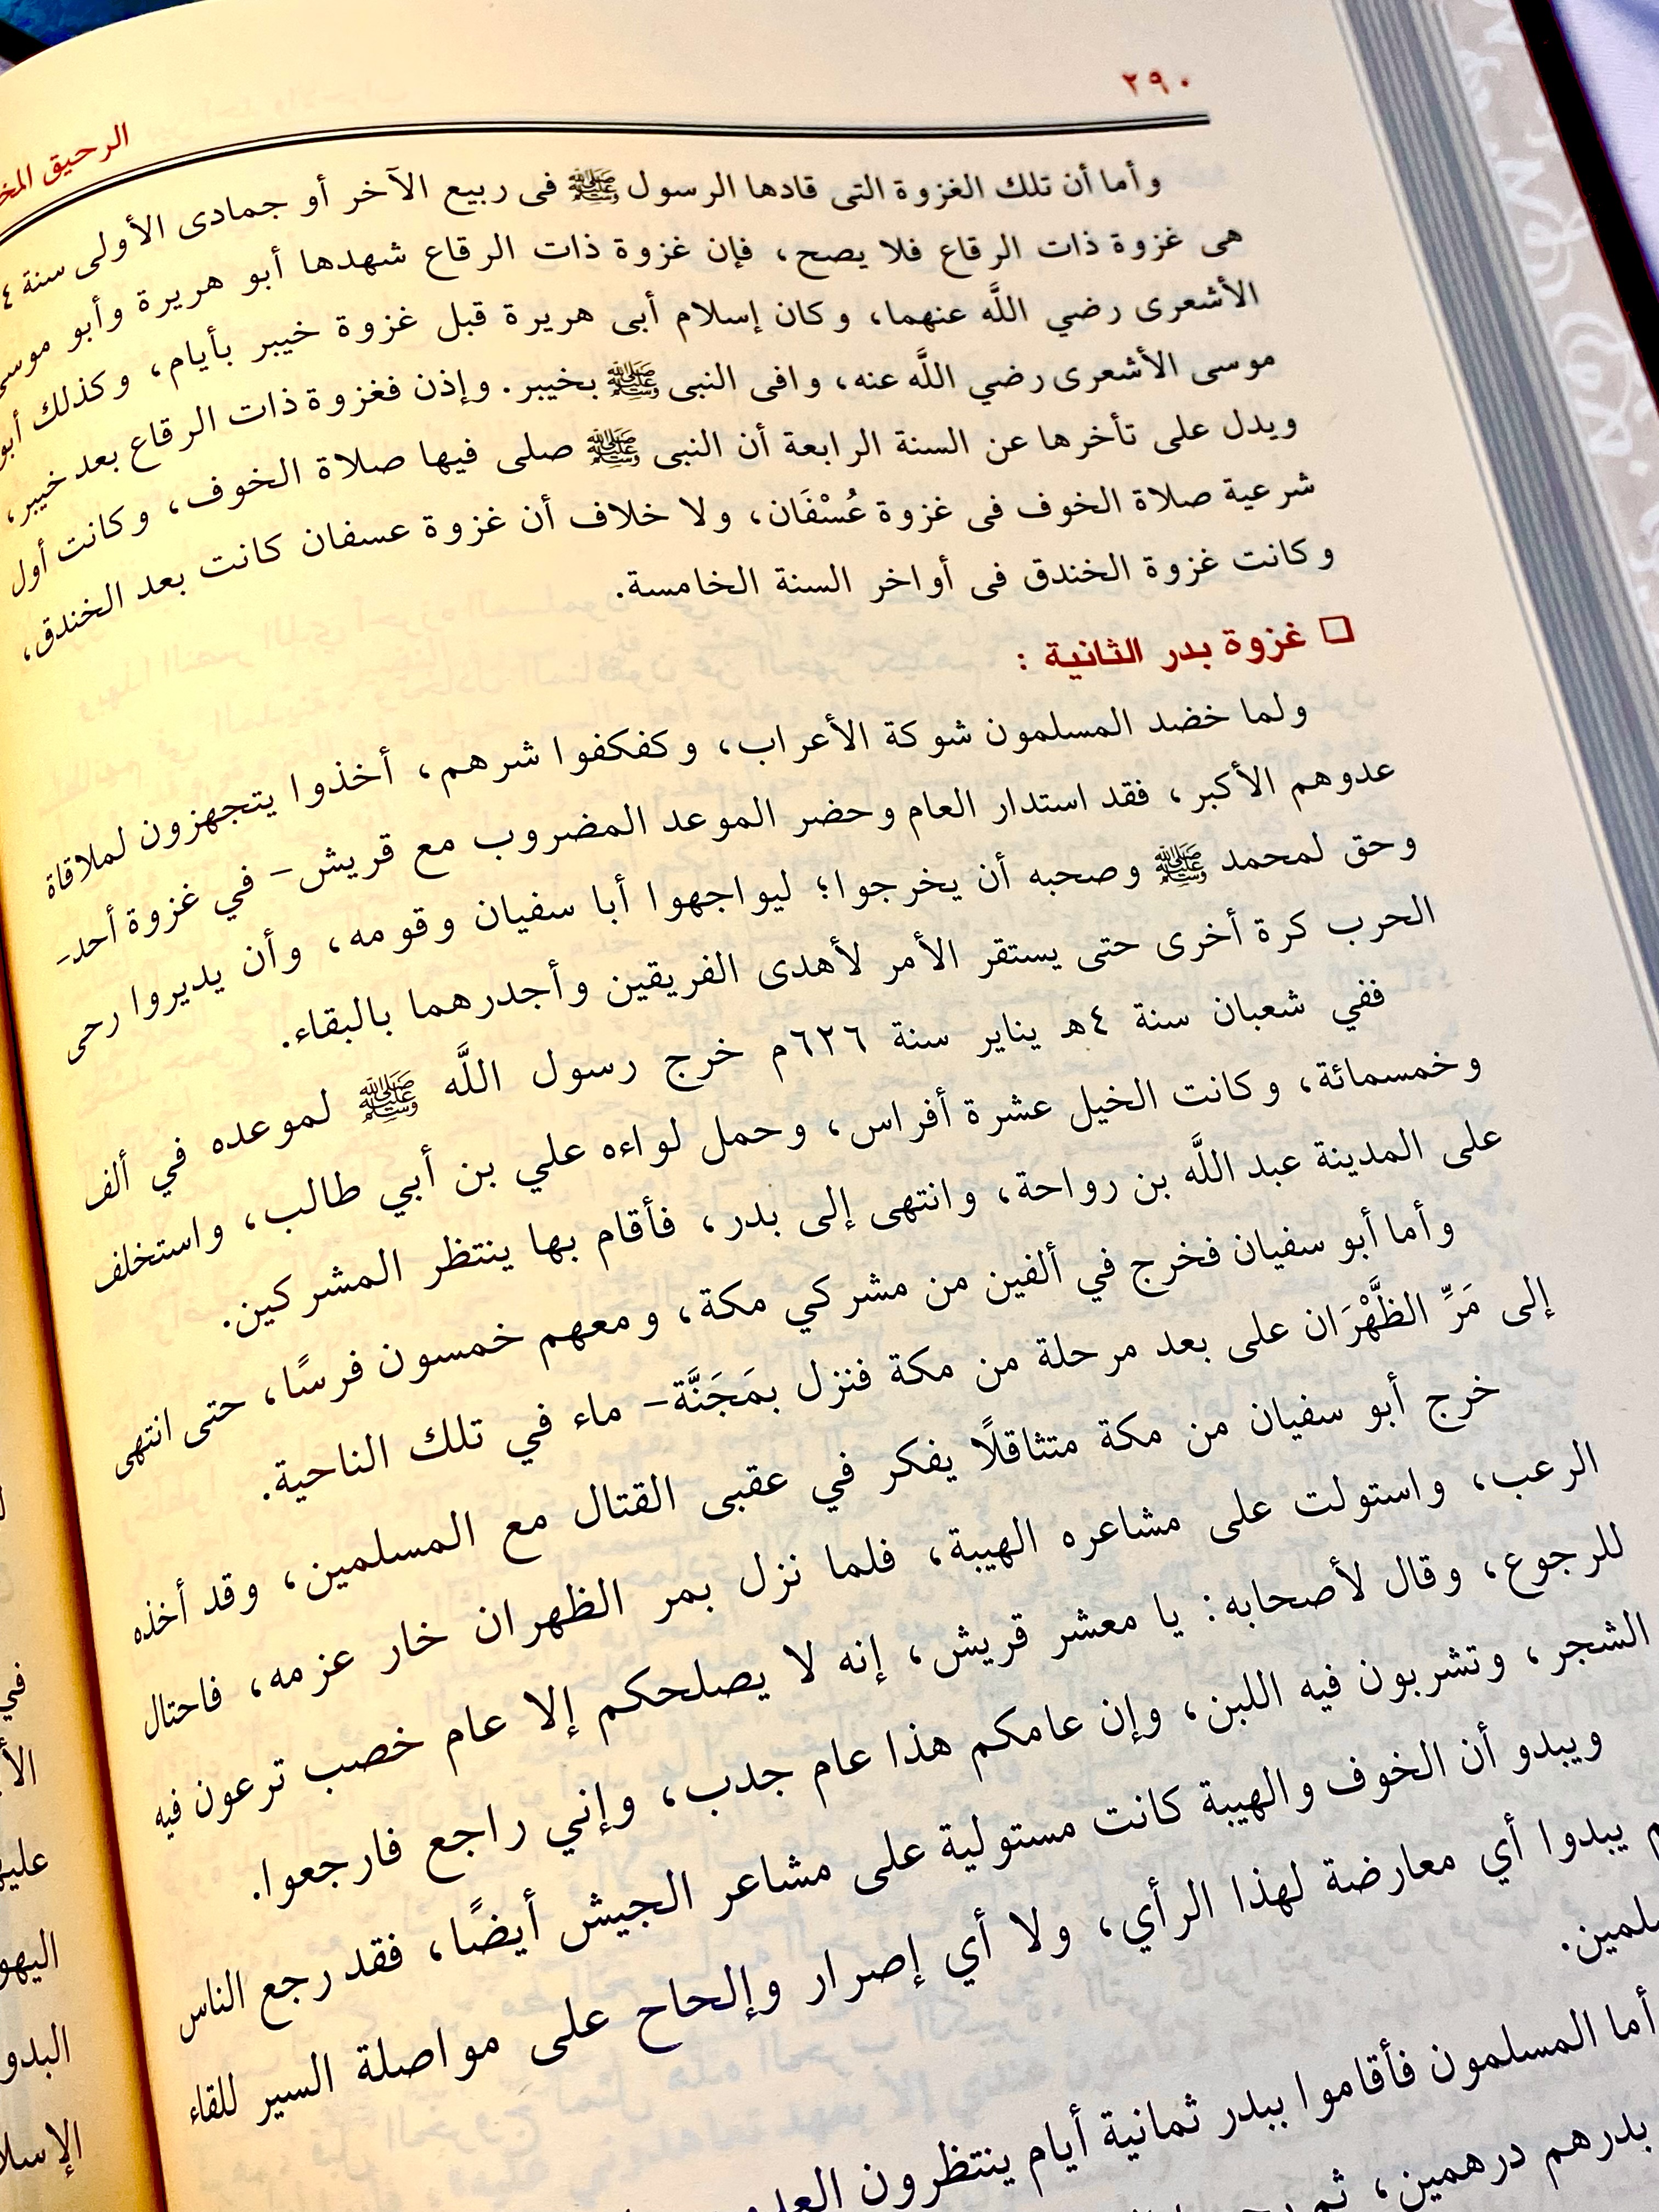 ٢٩٠
الرحيق
وأما أن تلك الغزوة التى قادها الرسول ﷺ فى ربيع الآخر أو جمادى الأولى سنة ٤
هى غزوة ذات الرقاع فلا يصح، فإن غزوة ذات الرقاع شهدها أبو هريرة وأبو موسى
الأشعرى رضي اللَّه عنهما، وكان إسلام أبى هريرة قبل غزوة خيبر بأيام، وكذلك أبو
موسى الأشعرى رضي اللَّه عنه، وافى النبى ﷺ بخيبر. وإذن فغزوة ذات الرقاع بعد خيبر،
ويدل على تأخرها عن السنة الرابعة أن النبى ﷺ صلى فيها صلاة الخوف، وكانت أول
شرعية صلاة الخوف فى غزوة عُسْفَان، ولا خلاف أن غزوة عسفان كانت بعد الخندق،
وكانت غزوة الخندق فى أواخر السنة الخامسة.
❑ غزوة بدر الثانية :
ولما خضد المسلمون شوكة الأعراب، وكفكفوا شرهم، أخذوا يتجهزون لملاقاة
عدوهم الأكبر، فقد استدار العام وحضر الموعد المضروب مع قريش- في غزوة أحد-
وحق لمحمد ﷺ وصحبه أن يخرجوا؛ ليواجهوا أبا سفيان وقومه، وأن يديروا رحى
الحرب كرة أخرى حتى يستقر الأمر لأهدى الفريقين وأجدرهما بالبقاء.
ففي شعبان سنة ٤هـ يناير سنة ٦٢٦م خرج رسول اللَّه ﷺ لموعده في ألف
وخمسمائة، وكانت الخيل عشرة أفراس، وحمل لواءه علي بن أبي طالب، واستخلف
على المدينة عبد اللَّه بن رواحة، وانتهى إلى بدر، فأقام بها ينتظر المشركين.
وأما أبو سفيان فخرج في ألفين من مشركي مكة، ومعهم خمسون فرسًا، حتى انتهى
إلى مَرِّ الظَّهْرَان على بعد مرحلة من مكة فنزل بمَجَنَّة- ماء في تلك الناحية.
خرج أبو سفيان من مكة متثاقلًا يفكر في عقبى القتال مع المسلمين، وقد أخذه
الرعب، واستولت على مشاعره الهيبة، فلما نزل بمر الظهران خار عزمه، فاحتال
للرجوع، وقال لأصحابه: يا معشر قريش، إنه لا يصلحكم إلا عام خصب ترعون فيه
الشجر، وتشربون فيه اللبن، وإن عامكم هذا عام جدب، وإني راجع فارجعوا.
ويبدو أن الخوف والهيبة كانت مستولية على مشاعر الجيش أيضًا، فقد رجع الناس
يبدوا أي معارضة لهذا الرأي، ولا أي إصرار وإلحاح على مواصلة السير للقاء
أما المسلمون فأقاموا ببدر ثمانية أيام ينتظرون
بدرهم درهمين، ثم